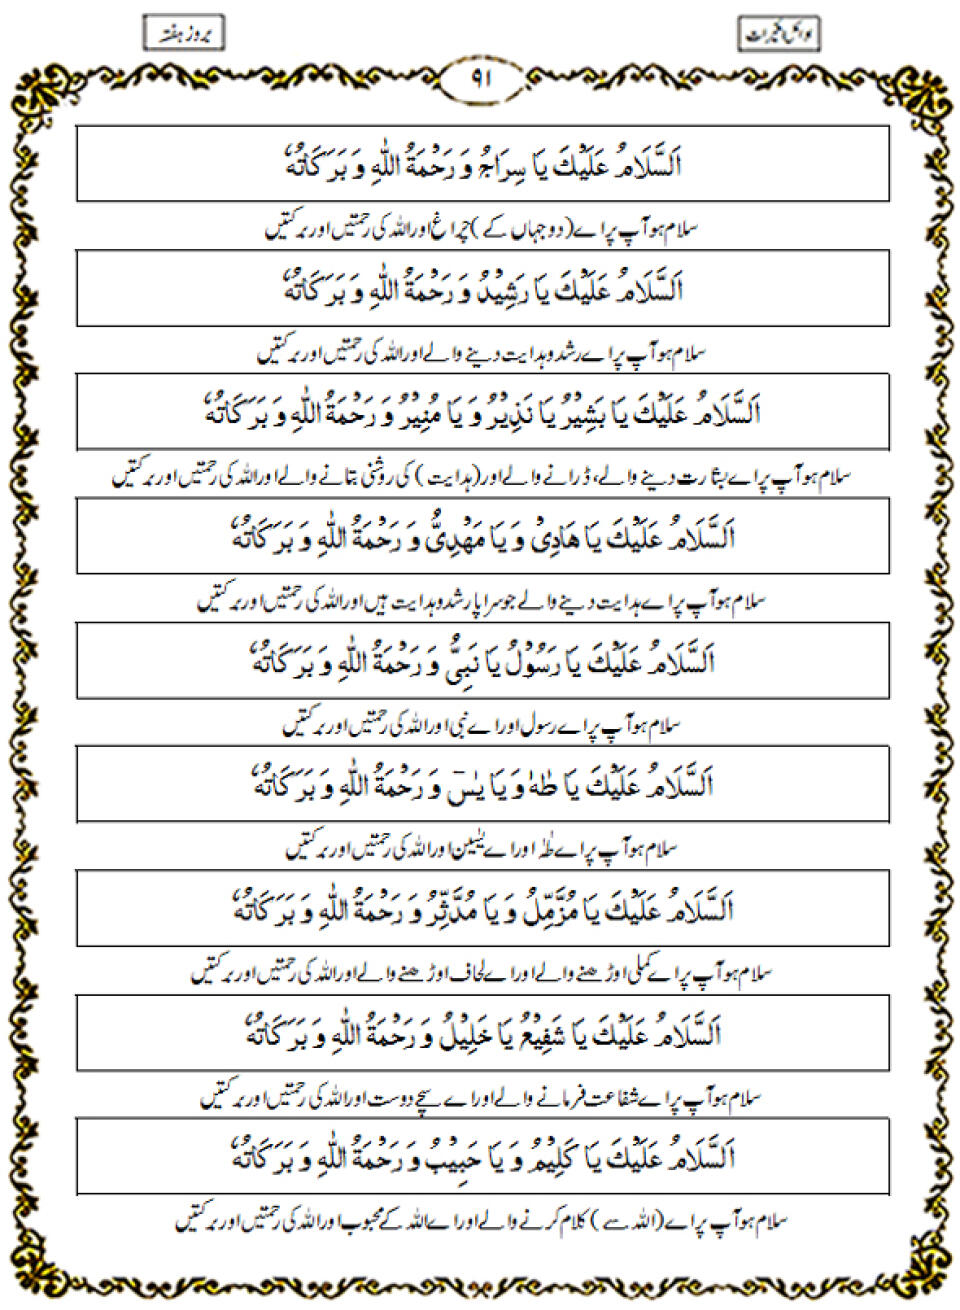 بروز ہفتہ
۹۱
اَلسَّلَامُ عَلَيْكَ يَا سِرَاجُ وَ رَحْمَةُ اللّٰهِ وَ بَرَكَاتُهٗ
سلام ہو آپ پر اے (دو جہاں کے) چراغ اور اللہ کی رحمتیں اور برکتیں
اَلسَّلَامُ عَلَيْكَ يَا رَشِيْدُ وَ رَحْمَةُ اللّٰهِ وَ بَرَكَاتُهٗ
سلام ہو آپ پر اے رشد و ہدایت دینے والے اور اللہ کی رحمتیں اور برکتیں
اَلسَّلَامُ عَلَيْكَ يَا بَشِيْرُ يَا نَذِيْرُ وَ يَا مُنِيْرُ وَ رَحْمَةُ اللّٰهِ وَ بَرَكَاتُهٗ
سلام ہو آپ پر اے بشارت دینے والے، ڈرانے والے اور (ہدایت) کی روشنی بتانے والے اور اللہ کی رحمتیں اور برکتیں
اَلسَّلَامُ عَلَيْكَ يَا هَادِىْ وَ يَا مَهْدِىُّ وَ رَحْمَةُ اللّٰهِ وَ بَرَكَاتُهٗ
سلام ہو آپ پر اے ہدایت دینے والے جو سراپا رشد و ہدایت ہیں اور اللہ کی رحمتیں اور برکتیں
اَلسَّلَامُ عَلَيْكَ يَا رَسُوْلُ يَا نَبِىُّ وَ رَحْمَةُ اللّٰهِ وَ بَرَكَاتُهٗ
سلام ہو آپ پر اے رسول اور اے نبی اور اللہ کی رحمتیں اور برکتیں
اَلسَّلَامُ عَلَيْكَ يَا طٰهٰ وَ يَا يٰسٓ وَ رَحْمَةُ اللّٰهِ وَ بَرَكَاتُهٗ
سلام ہو آپ پر اے طٰہٰ اور اے یٰسین اور اللہ کی رحمتیں اور برکتیں
اَلسَّلَامُ عَلَيْكَ يَا مُزَّمِّلُ وَ يَا مُدَّثِّرُ وَ رَحْمَةُ اللّٰهِ وَ بَرَكَاتُهٗ
سلام ہو آپ پر اے کملی اوڑھنے والے اور اے لحاف اوڑھنے والے اور اللہ کی رحمتیں اور برکتیں
اَلسَّلَامُ عَلَيْكَ يَا شَفِيْعُ يَا خَلِيْلُ وَ رَحْمَةُ اللّٰهِ وَ بَرَكَاتُهٗ
سلام ہو آپ پر اے شفاعت فرمانے والے اور اے سچے دوست اور اللہ کی رحمتیں اور برکتیں
اَلسَّلَامُ عَلَيْكَ يَا كَلِيْمُ وَ يَا حَبِيْبُ وَ رَحْمَةُ اللّٰهِ وَ بَرَكَاتُهٗ
سلام ہو آپ پر اے (اللہ سے) کلام کرنے والے اور اے اللہ کے محبوب اور اللہ کی رحمتیں اور برکتیں